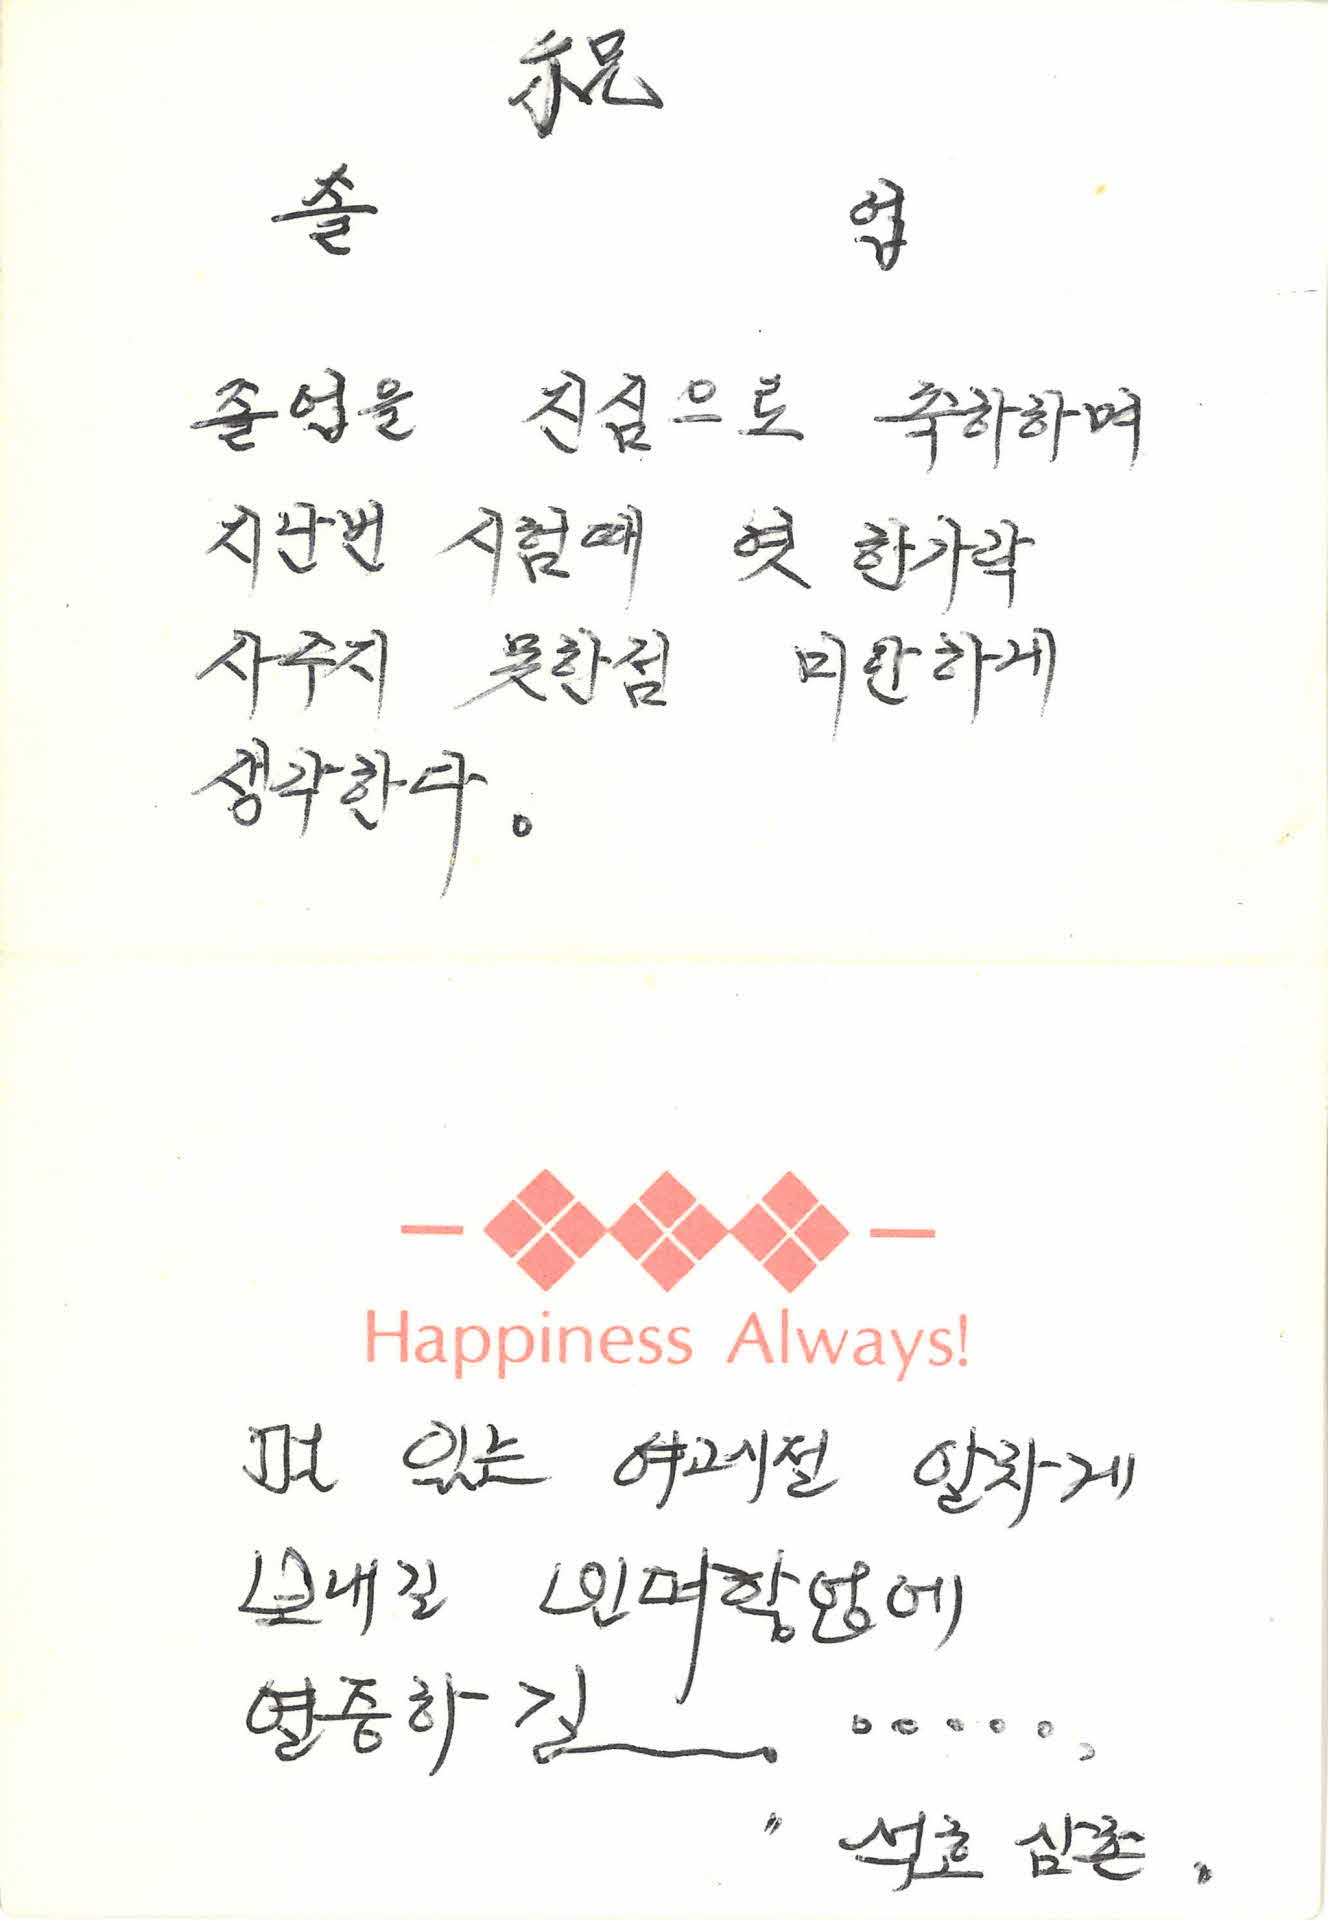 祝
졸 업
졸업을 진심으로 축하하며
지난번 시험때 엿 한가락
사주지 못한점 미안하게
생각한다.
Happiness Always!
멋 있는 여고시절 알차게
보내길 빌며 학업에
열중하길 . ......
"석호 삼촌."